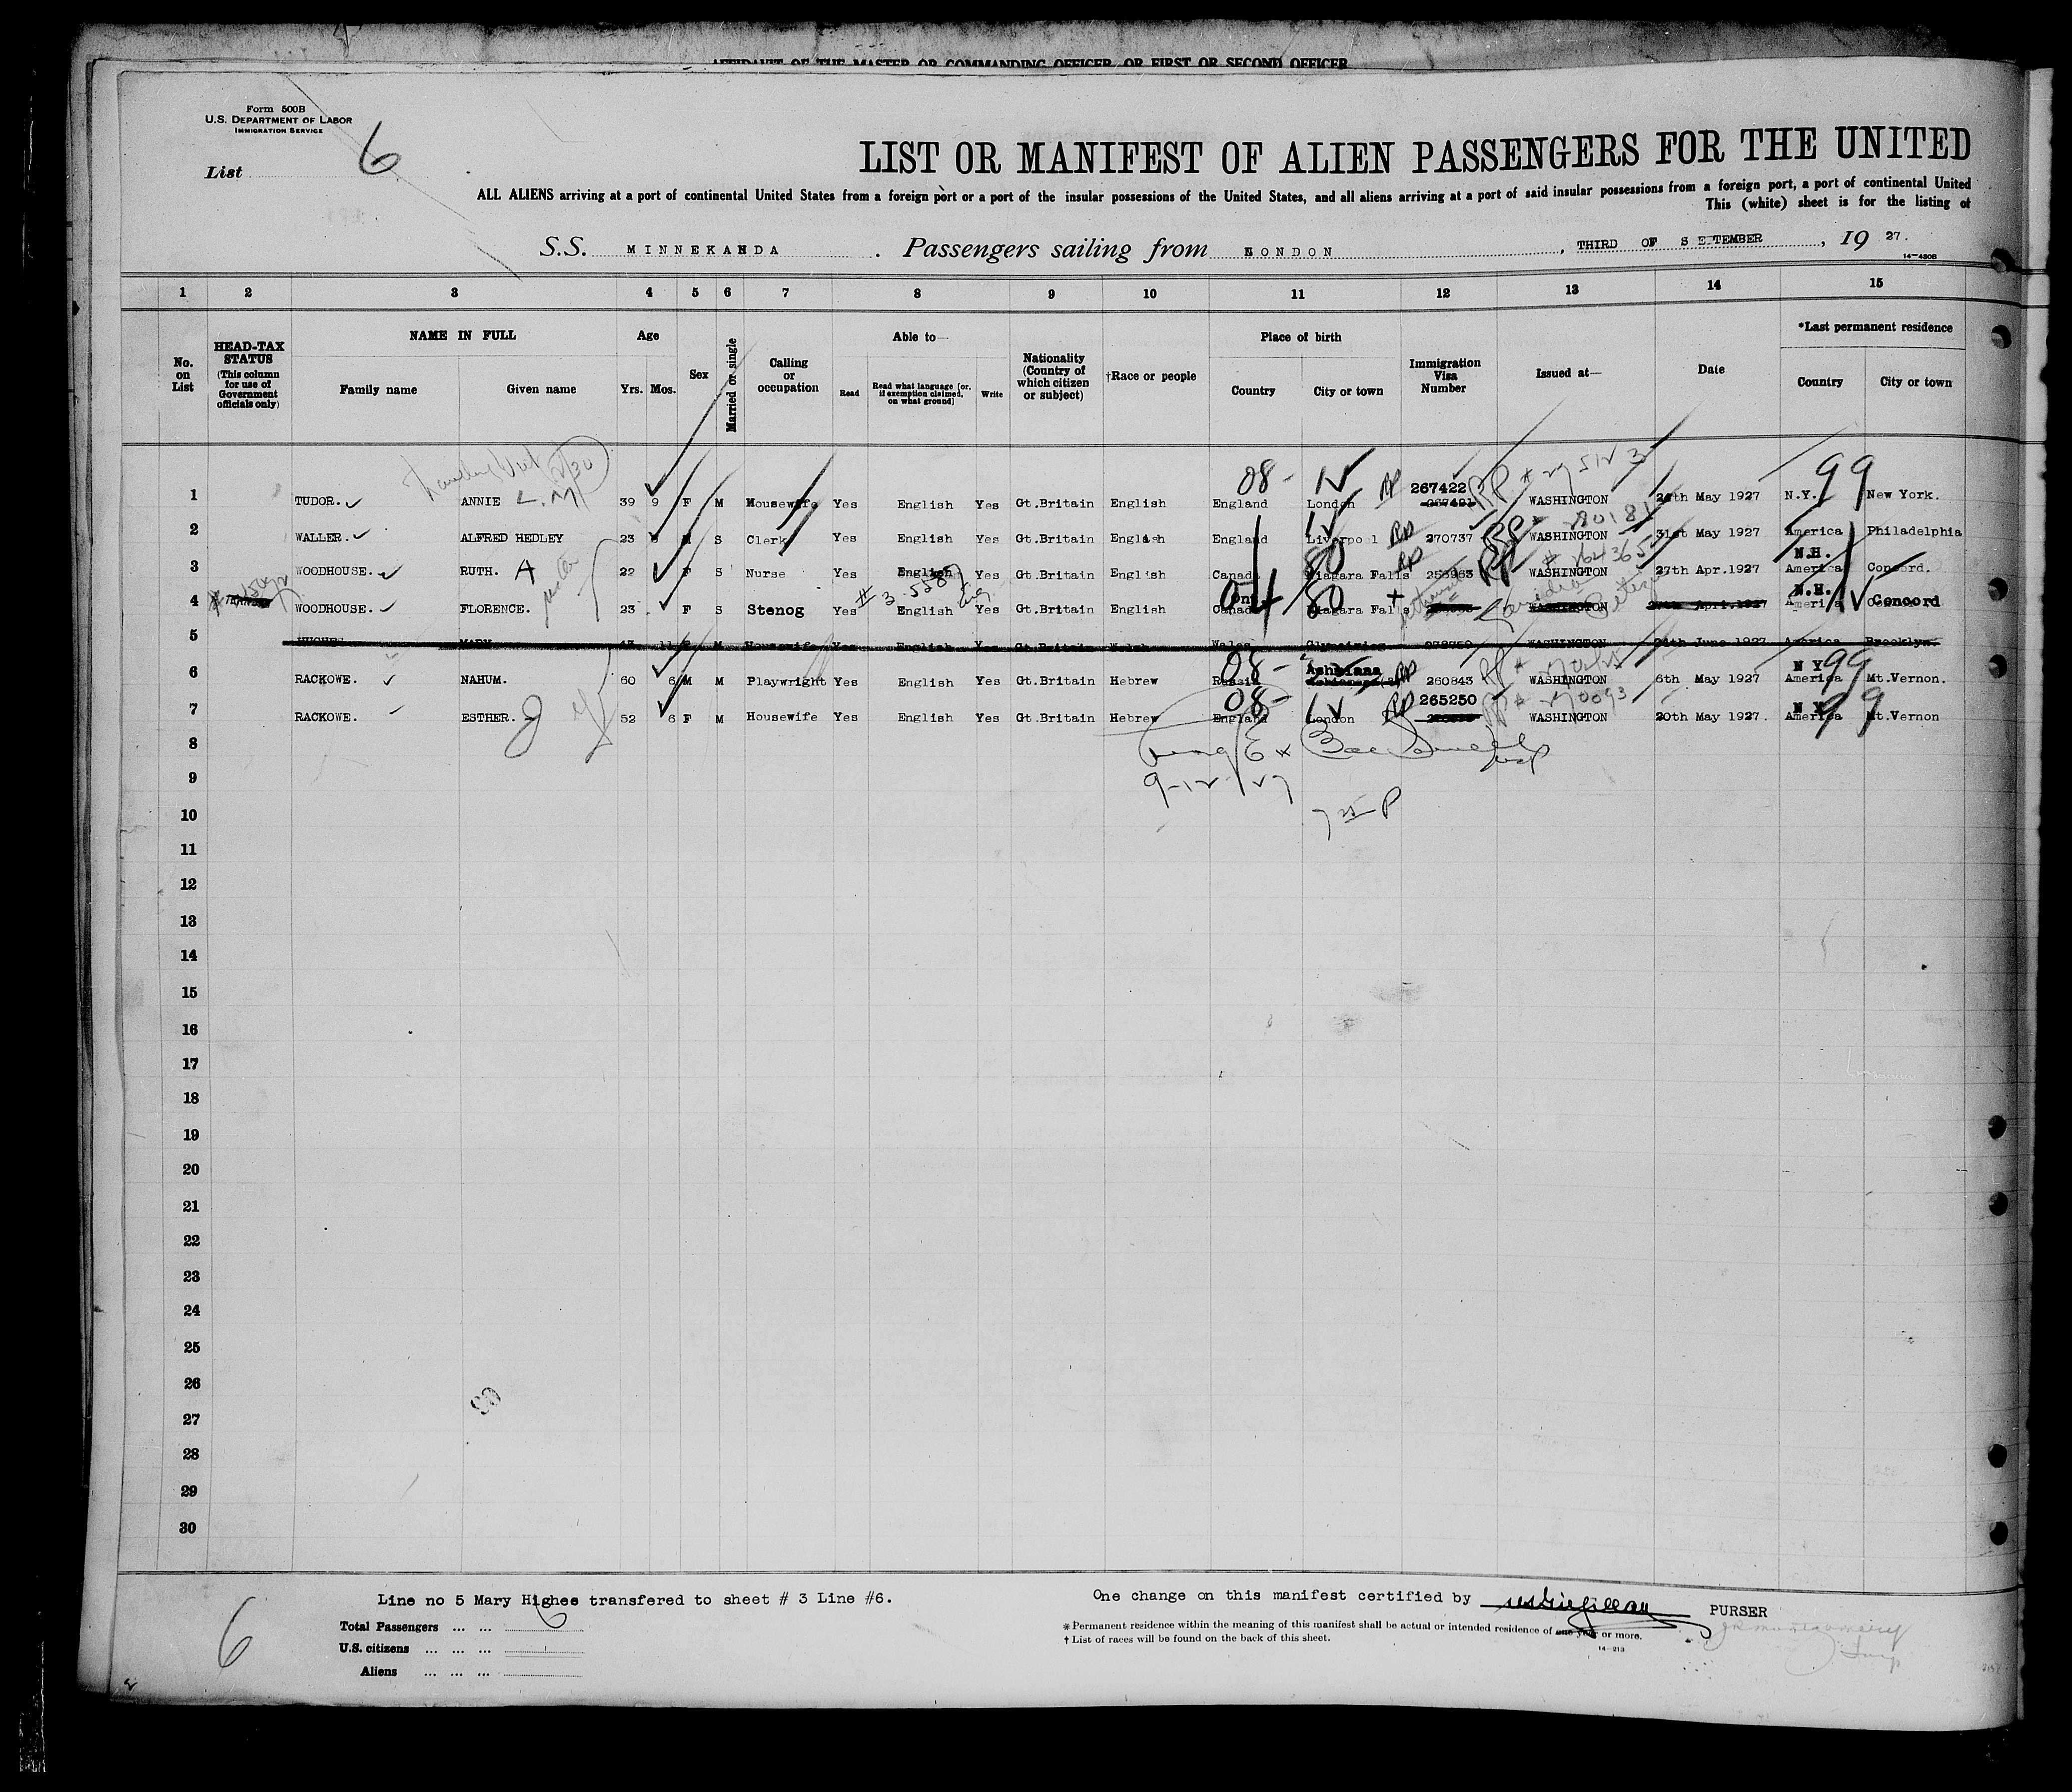 AFFIDAVIT OF THE MASTER OR COMMANDING OFFICER, OR FIRST OR SECOND OFFICER
Form 500B
U.S. DEPARTMENT OF LABOR
IMMIGRATION SERVICE
List 6
LIST OR MANIFEST OF ALIEN PASSENGERS FOR THE UNITED
ALL ALIENS arriving at a port of continental United States from a foreign port or a port of the insular possessions of the United States, and all aliens arriving at a port of said insular possessions from a foreign port, a port of continental United
This (white) sheet is for the listing of
S.S. MINNEKAHDA . Passengers sailing from LONDON , THIRD OF SEPTEMBER , 19 27.
14-430B
1 2 3 4 5 6 7 8 9 10 11 12 13 14 15
No. on List
HEAD-TAX STATUS (This column for use of Government officials only)
NAME IN FULL
Family name Given name
Age
Yrs. Mos.
Sex
Married or single
Calling or occupation
Able to—
Read Read what language [or, if exemption claimed, on what ground] Write
Nationality (Country of which citizen or subject)
†Race or people
Place of birth
Country City or town
Immigration Visa Number
Issued at—
Date
*Last permanent residence
Country City or town
08- 99
1 TUDOR. ANNIE L. M 39 9 F M Housewife Yes English Yes Gt.Britain English England London RP 267422 WASHINGTON 24th May 1927 N.Y. New York.
2 WALLER. ALFRED HEDLEY 23 M S Clerk Yes English Yes Gt.Britain English England Liverpool RP 270737 WASHINGTON 31st May 1927 America Philadelphia
3 WOODHOUSE. RUTH. A 22 F S Nurse Yes English Yes Gt.Britain English Canada 80 Niagara Falls RP 253963 RP WASHINGTON 27th Apr.1927 N.H. America Concord.
4 WOODHOUSE. FLORENCE. 23 F S Stenog Yes English Yes Gt.Britain English Canada 80 Niagara Falls WASHINGTON April.1927 N.H. America Concord
5 HUGHES MARY 43 11 F M Housewife Yes English Yes Gt.Britain Welsh Wales WASHINGTON 24th June 1927 America Brooklyn.
08- 99
6 RACKOWE. NAHUM. 60 6 M M Playwright Yes English Yes Gt.Britain Hebrew Russia RP 260843 WASHINGTON 6th May 1927 N Y America Mt.Vernon.
08- 99
7 RACKOWE. ESTHER. J 52 6 F M Housewife Yes English Yes Gt.Britain Hebrew England London RP 265250 WASHINGTON 20th May 1927. N Y America Mt.Vernon
8
9
10
11
12
13
14
15
16
17
18
19
20
21
22
23
24
25
26
27
28
29
30
Line no 5 Mary Highes transfered to sheet # 3 Line #6.
One change on this manifest certified by PURSER
Total Passengers ... ... 6
U.S. citizens ... ... ...
Aliens ... ... ...
* Permanent residence within the meaning of this manifest shall be actual or intended residence of one year or more.
† List of races will be found on the back of this sheet.
14-213
6